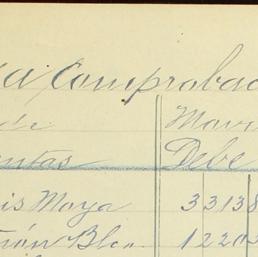 a Comprobac
de Movi
entas Debe
is Moya 33138
món Blan 12203